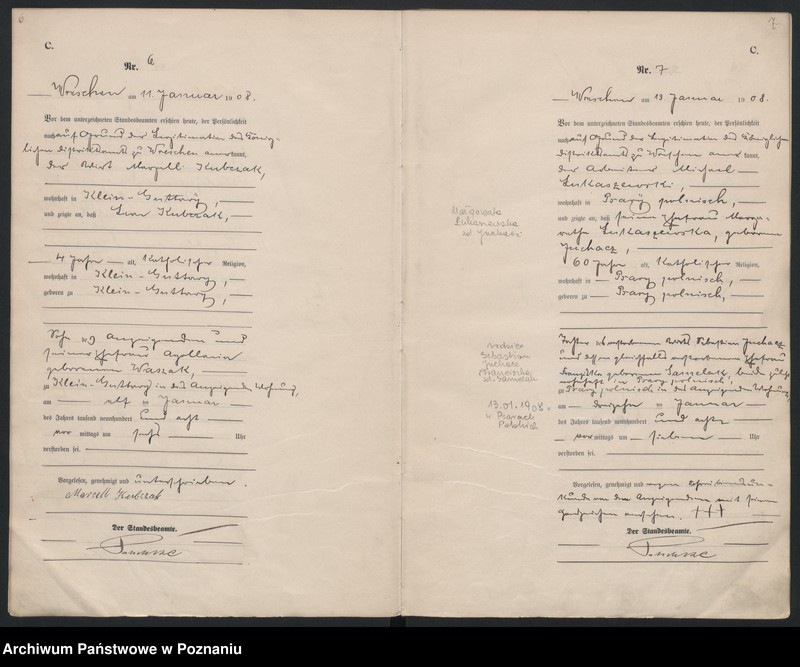 6
C.
Nr. 6
Wreschen am 11. Januar 1908.
Vor dem unterzeichneten Standesbeamten erschien heute, der Persönlichkeit
nach auf Grund der Legitimation des König-
lichen Distriktsamts zu Wreschen anerkannt,
der Wirt Marzell Kubczak,
wohnhaft in Klein-Guttowy,
und zeigte an, daß Leon Kubczak,
4 Jahr alt, katholischer Religion,
wohnhaft in Klein-Guttowy,
geboren zu Klein-Guttowy,
Sohn des Anzeigenden und
seiner Ehefrau Apollonia
geborenen Waszak,
zu Klein-Guttowy in des Anzeigenden Wohnung,
am elf ten Januar
des Jahres tausend neunhundert und acht
vor mittags um sechs Uhr
verstorben sei.
Vorgelesen, genehmigt und unterschrieben.
Marcell Kubczak
Der Standesbeamte.
7
C.
Nr. 7
Wreschen am 13. Januar 1908.
Vor dem unterzeichneten Standesbeamten erschien heute, der Persönlichkeit
nach auf Grund der Legitimation des Königlichen
Distriktsamts zu Wreschen anerkannt,
der Arbeiter Michael
Lukaszewski,
wohnhaft in Psary polnisch,
und zeigte an, daß seine Ehefrau Marga-
rethe Lukaszewska, geborene
Juchacz,
60 Jahr alt, katholischer Religion,
wohnhaft in Psary polnisch,
geboren zu Psary polnisch,
Tochter des verstorbenen Wirts Sebastian Juchacz
und dessen gleichfalls verstorbenen Ehefrau
Franziska geborenen Samelak, beide zuletzt
wohnhaft in Psary polnisch,
zu Psary polnisch in des Anzeigenden Wohnung,
am dreizehn ten Januar
des Jahres tausend neunhundert und acht
vor mittags um sieben Uhr
verstorben sei.
Vorgelesen, genehmigt und wegen Schreibensun-
kunde von dem Anzeigenden mit seinem
Handzeichen versehen. +++
Der Standesbeamte.
Małgorzata
Łukaszewska
zd Juchacz
rodzice
Sebastian
Juchacz
Franciszka
zd. Samelak
13.01.1908 r
w Psarach
Polskich
Archiwum Państwowe w Poznaniu